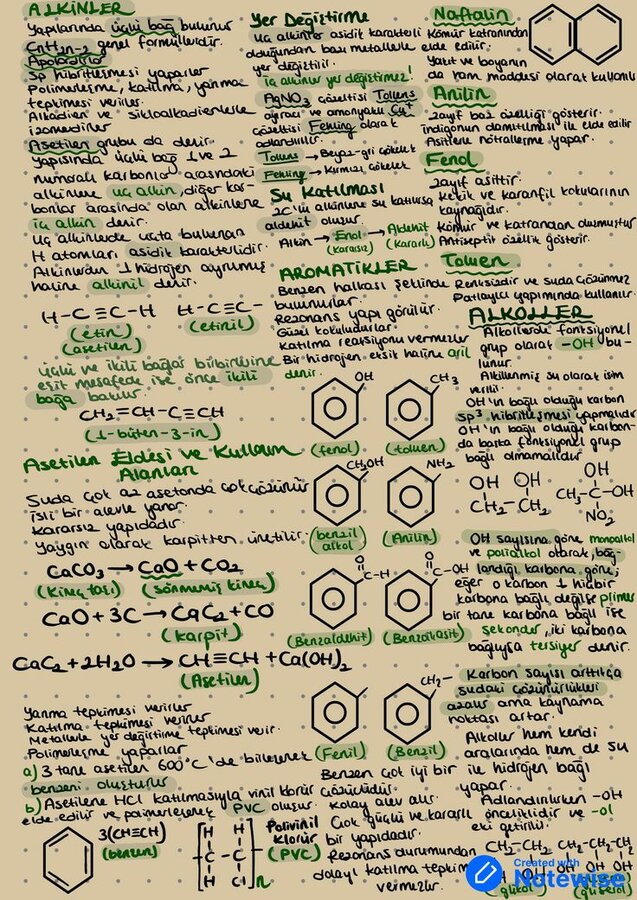 ALKİNLER
Yapılarında üçlü bağ bulunur
CnH2n-2 genel formüllerdir.
Apolardırlar
Sp hibritleşmesi yaparlar
Polimerleşme, katılma, yanma
tepkimesi verirler.
Alkadien ve sikloalkadienlerle
izomerdirler
Asetilen grubu da denir.
Yapısında üçlü bağ 1 ve 2
numaralı karbonlar arasındaki
alkinlere uç alkin, diğer kar-
bonlar arasında olan alkinlere
iç alkin denir.
Uç alkinlerde uçta bulunan
H atomları asidik karakterlidir.
Alkinlerden 1 hidrojen ayrılmış
haline alkinil denir.
H-C≡C-H H-C≡C-
(etin) (etinil)
(asetilen)
üçlü ve ikili bağlar birbirlerine
eşit mesafede ise önce ikili
bağa bakılır.
CH2=CH-C≡CH
(1-büten-3-in)
Asetilen Eldesi ve Kullanım
Alanları
Suda çok az asetonda çok çözünür
İsli bir alevle yanar.
Kararsız yapıdadır.
Yaygın olarak karpitten üretilir.
CaCO3→CaO+CO2
(Kireç taşı) (Sönmemiş kireç)
CaO+3C→CaC2+CO
(karpit)
CaC2+2H2O→CH≡CH+Ca(OH)2
(Asetilen)
Yanma tepkimesi verirler
Katılma tepkimesi verirler
Metallerle yer değiştirme tepkimesi verir.
Polimerleşme yaparlar
a) 3 tane asetilen 600°C'de birleşerek
benzeni oluşturur
b) Asetilene HCl katılmasıyla vinil klorür
elde edilir ve polimerleşerek PVC oluşur.
3(CH≡CH)
(benzen)
H H
C-C
H Cl n
Polivinil
Klorür
(PVC)
Yer Değiştirme
Uç alkinler asidik karakterli
olduğundan bazı metallerle
yer değiştirir.
iç alkinler yer değiştirmez!
AgNO3 çözeltisi Tollens
ayıracı ve amonyaklı Cu+
çözeltisi Fehling olarak
adlandırılır.
Tollens → Beyaz-gri çökelek
Fehling → Kırmızı çökelek
Su Katılması
2C'li alkinlere su katılırsa
aldehit oluşur.
Alkin → Enol → Aldehit
(Kararsız) (Kararlı)
AROMATİKLER
Benzen halkası şeklinde
bulunurlar.
Rezonans yapı görülür.
Güzel kokuludurlar.
Katılma reaksiyonu vermezler
Bir hidrojen eksik haline aril
denir.
OH CH3
(fenol) (toluen)
CH2OH NH2
(benzil
alkol) (Anilin)
O
C-H
O
C-OH
(Benzaldehit) (Benzoikasit)
CH2-
(Fenil) (Benzil)
Benzen çok iyi bir
çözücüdür.
Kolay alev alır.
Çok güçlü ve kararlı
bir yapıdadır.
Rezonans durumundan
dolayı katılma tepkim
vermezler.
Naftalin
Kömür katranından
elde edilir.
Yakıt ve boyanın
da ham maddesi olarak kullanılır
Anilin
Zayıf baz özelliği gösterir.
İndigonun damıtılması ile elde edilir
Asitlerle nötralleşme yapar.
Fenol
Zayıf asittir.
Kekik ve karanfil kokularının
kaynağıdır.
Kömür ve katrandan oluşmuştur
Antiseptik özellik gösterir.
Toluen
Renksizdir ve suda çözünmez
Patlayıcı yapımında kullanılır.
ALKOLLER
Alkollerde fonksiyonel
grup olarak -OH bu-
lunur.
Alkillenmiş su olarak isim
verilir.
OH'ın bağlı olduğu karbon
sp3 hibritleşmesi yapmalıdır
OH'ın bağlı olduğu karbon-
da başka fonksiyonel grup
bağlı olmamalıdır
OH OH
CH2-CH2
OH
CH3-C-OH
NO2
OH sayısına göre monoalkol
ve polialkol olarak, bağ-
landığı karbona göre;
eğer o karbon 1 hiçbir
karbona bağlı değilse primer
bir tane karbona bağlı ise
sekonder, iki karbona
bağlıysa tersiyer denir.
Karbon sayısı arttıkça
sudaki çözünürlükleri
azalır ama kaynama
noktası artar.
Alkoller hem kendi
aralarında hem de su
ile hidrojen bağı
yapar.
Adlandırılırken -OH
önceliklidir ve -ol
eki getirilir.
CH2-CH2 CH2-CH-CH2
OH OH OH OH OH
(glikol) (gliserol)
Created with
Notewise